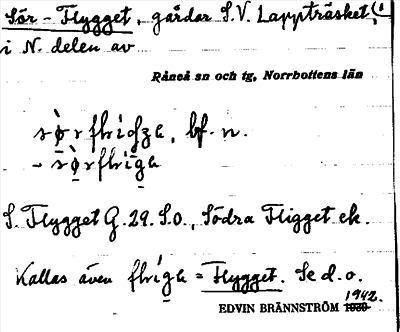 Sör-Flygget, gårdar S.V. Lappträsket,
i N. delen av
Råneå sn och tg, Norrbottens län
bf. n.
S. Flygget G. 29. S.o., Södra Fligget ek.
Kallas även = Flygget. Se d.o.
EDVIN BRÄNNSTRÖM 1942.